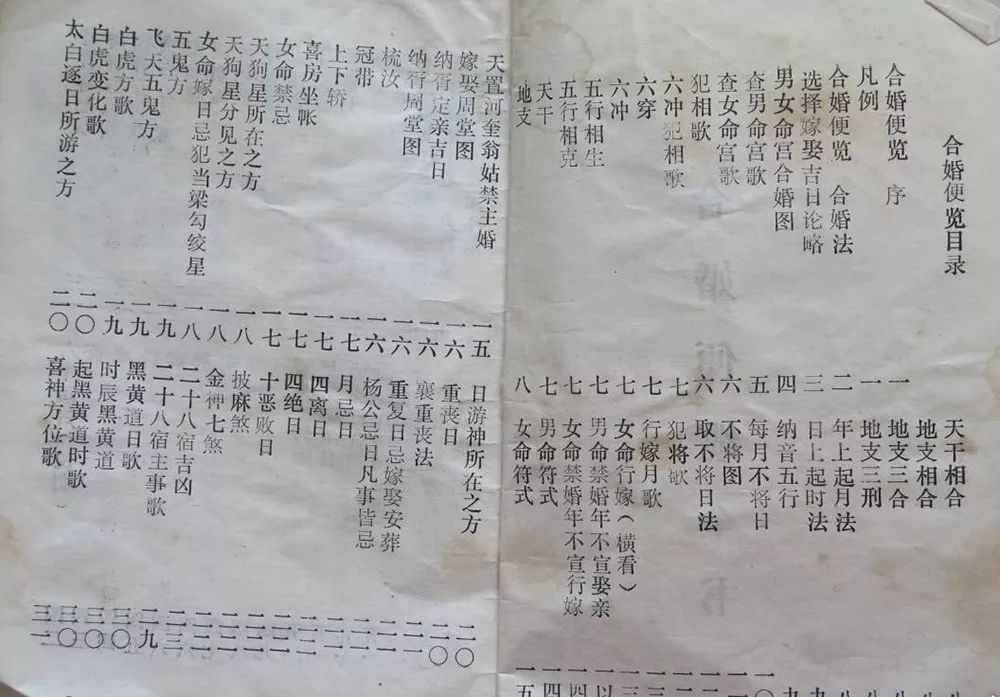 合婚便览目录
合婚便览 序 一
凡例 一
合婚便览 合婚法 二
选择嫁娶吉日论略 三
男女命宫合婚图 四
查男命宫歌 五
查女命宫歌 六
犯相歌 六
六冲犯相歌 七
六穿 七
六冲 七
五行相生 七
五行相克 七
天干 七
地支 八
天干相合
地支相合
地支三合
地支三刑
年上起月法
日上起时法
纳音五行
每月不将日
不将图
取不将日法
犯将歌
行嫁月歌
女命行嫁（横看）
男命禁婚年不宣娶亲
女命禁婚年不宣行嫁
男命符式
女命符式
天置河奎翁姑禁主婚 一五
嫁娶周堂图 一六
纳胥定亲吉日 一六
纳胥周堂图 一六
梳汝 一六
冠带 一七
上下轿 一七
喜房坐帐 一七
女命禁忌 一七
天狗星所在之方 一八
天狗星分见之方 一八
女命嫁日忌犯当梁勾绞星 一八
五鬼方 一九
飞天五鬼方 一九
白虎方歌 一九
白虎变化歌 二〇
太白逐日所游之方 二〇
日游神所在之方 二〇
重丧日 二〇
襄重丧法
重复日忌嫁娶安葬
杨公忌日凡事皆忌
月忌日
四离日
四绝日
十恶败日
披麻煞
金神七煞
二十八宿吉凶
二十八宿主事歌
黑黄道日歌 二九
时辰黑黄道 三〇
起黑黄道时歌 三〇
喜神方位歌